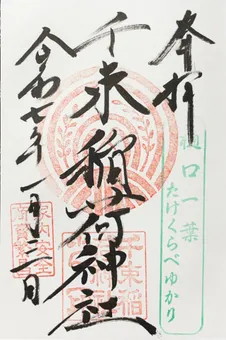 奉拝
樋口一葉
たけくらべゆかり
千束稲荷神社
千束稲
荷神社
令和七年一月三日
家内安全
商売繁昌